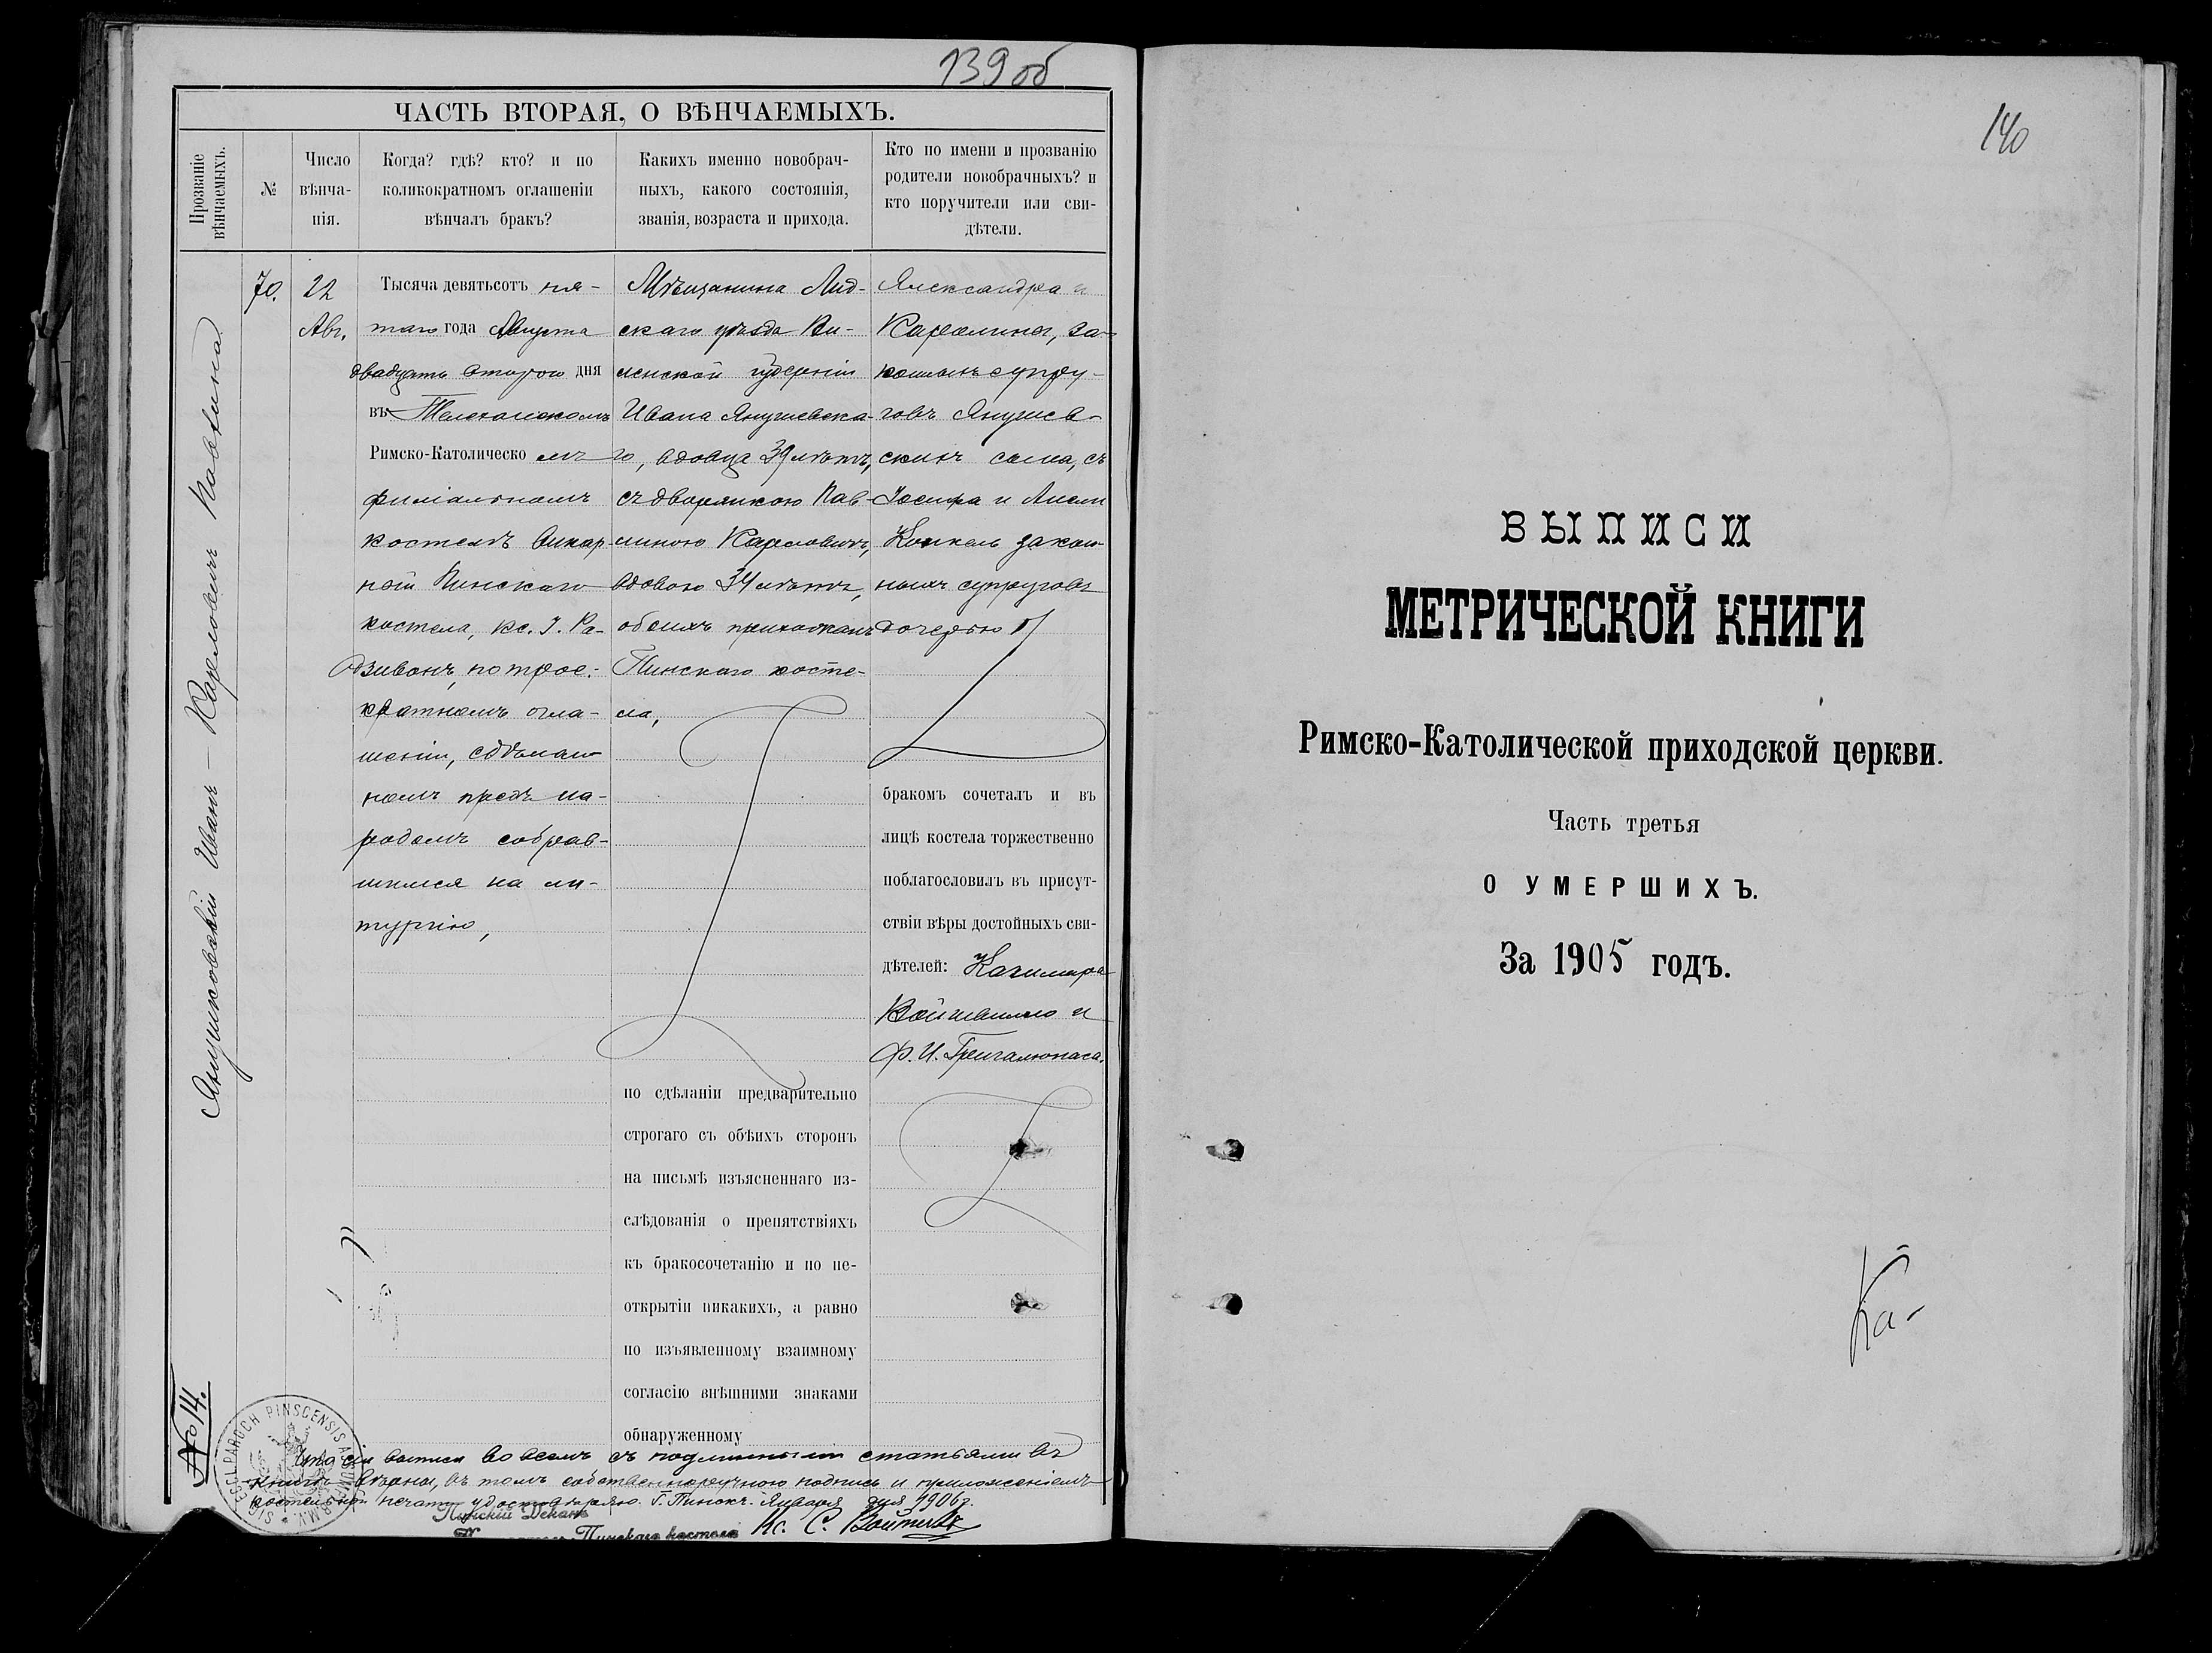 139 об
ЧАСТЬ ВТОРАЯ, О ВѢНЧАЕМЫХЪ.
Прозваніе
вѣнчаемыхъ.
№
Число
вѣнча-
нія.
Когда? гдѣ? кто? и по
коликократномъ оглашеніи
вѣнчалъ бракъ?
Какихъ именно новобрач-
ныхъ, какого состоянія,
званія, возраста и прихода.
Кто по имени и прозванію
родители новобрачныхъ? и
кто поручители или сви-
дѣтели.
Янушковскій Иванъ – Карловичъ Павлина
70.
22
Авг.
Тысяча девятьсотъ пя-
таго года Августа
двадцать второго дня
въ Телеханскомъ
Римско-Католическомъ
филіальномъ
костелѣ Викар-
ній Пинскаго
костела, кс. І. Ра-
дзивонъ, по трое-
кратномъ огла-
шеніи, сдѣлан-
номъ предъ на-
родомъ собрав-
шимся на ли-
тургію,
Мѣщанина Лид-
скаго уѣзда Ви-
ленской губерніи
Ивана Янушевска-
го, вдовца 39 лѣтъ,
съ дворянкою Пав-
линою Карловичъ,
вдовою 34 лѣтъ,
обоихъ прихожанъ
Пинскаго косте-
ла,
по сдѣланіи предварительно
строгаго съ обѣихъ сторонъ
на письмѣ изъясненнаго из-
слѣдованія о препятствіяхъ
къ бракосочетанію и по не-
открытіи никакихъ, а равно
по изъявленному взаимному
согласію внѣшними знаками
обнаруженному
Александра и
Каролины, за-
конныхъ супру-
говъ Янушев-
скихъ сына, съ
Іосифа и Анели
Конкель закон-
ныхъ супруговъ
дочерью
бракомъ сочеталъ и въ
лицѣ костела торжественно
поблагословилъ въ присут-
ствіи вѣры достойныхъ сви-
дѣтелей: Казимира
Войшвилло и
Ф. И. Григалюнаса.
№ 14.
SIG. ECCL. PAROCH PINSCENSIS ASSUM. B.M.V.
Что сіи выписи во всемъ съ подлинными статьями въ
книгѣ вѣрны, въ томъ собственноручною подписью и приложеніемъ
костельной печати удостовѣряю. Г. Пинскъ. Января дня 1906 г.
Пинскій Деканъ
Пинскаго костела Кс. С.
140
ВЫПИСИ
МЕТРИЧЕСКОЙ КНИГИ
Римско-Католической приходской церкви.
Часть третья
О УМЕРШИХЪ.
За 1905 годъ.
Ка-